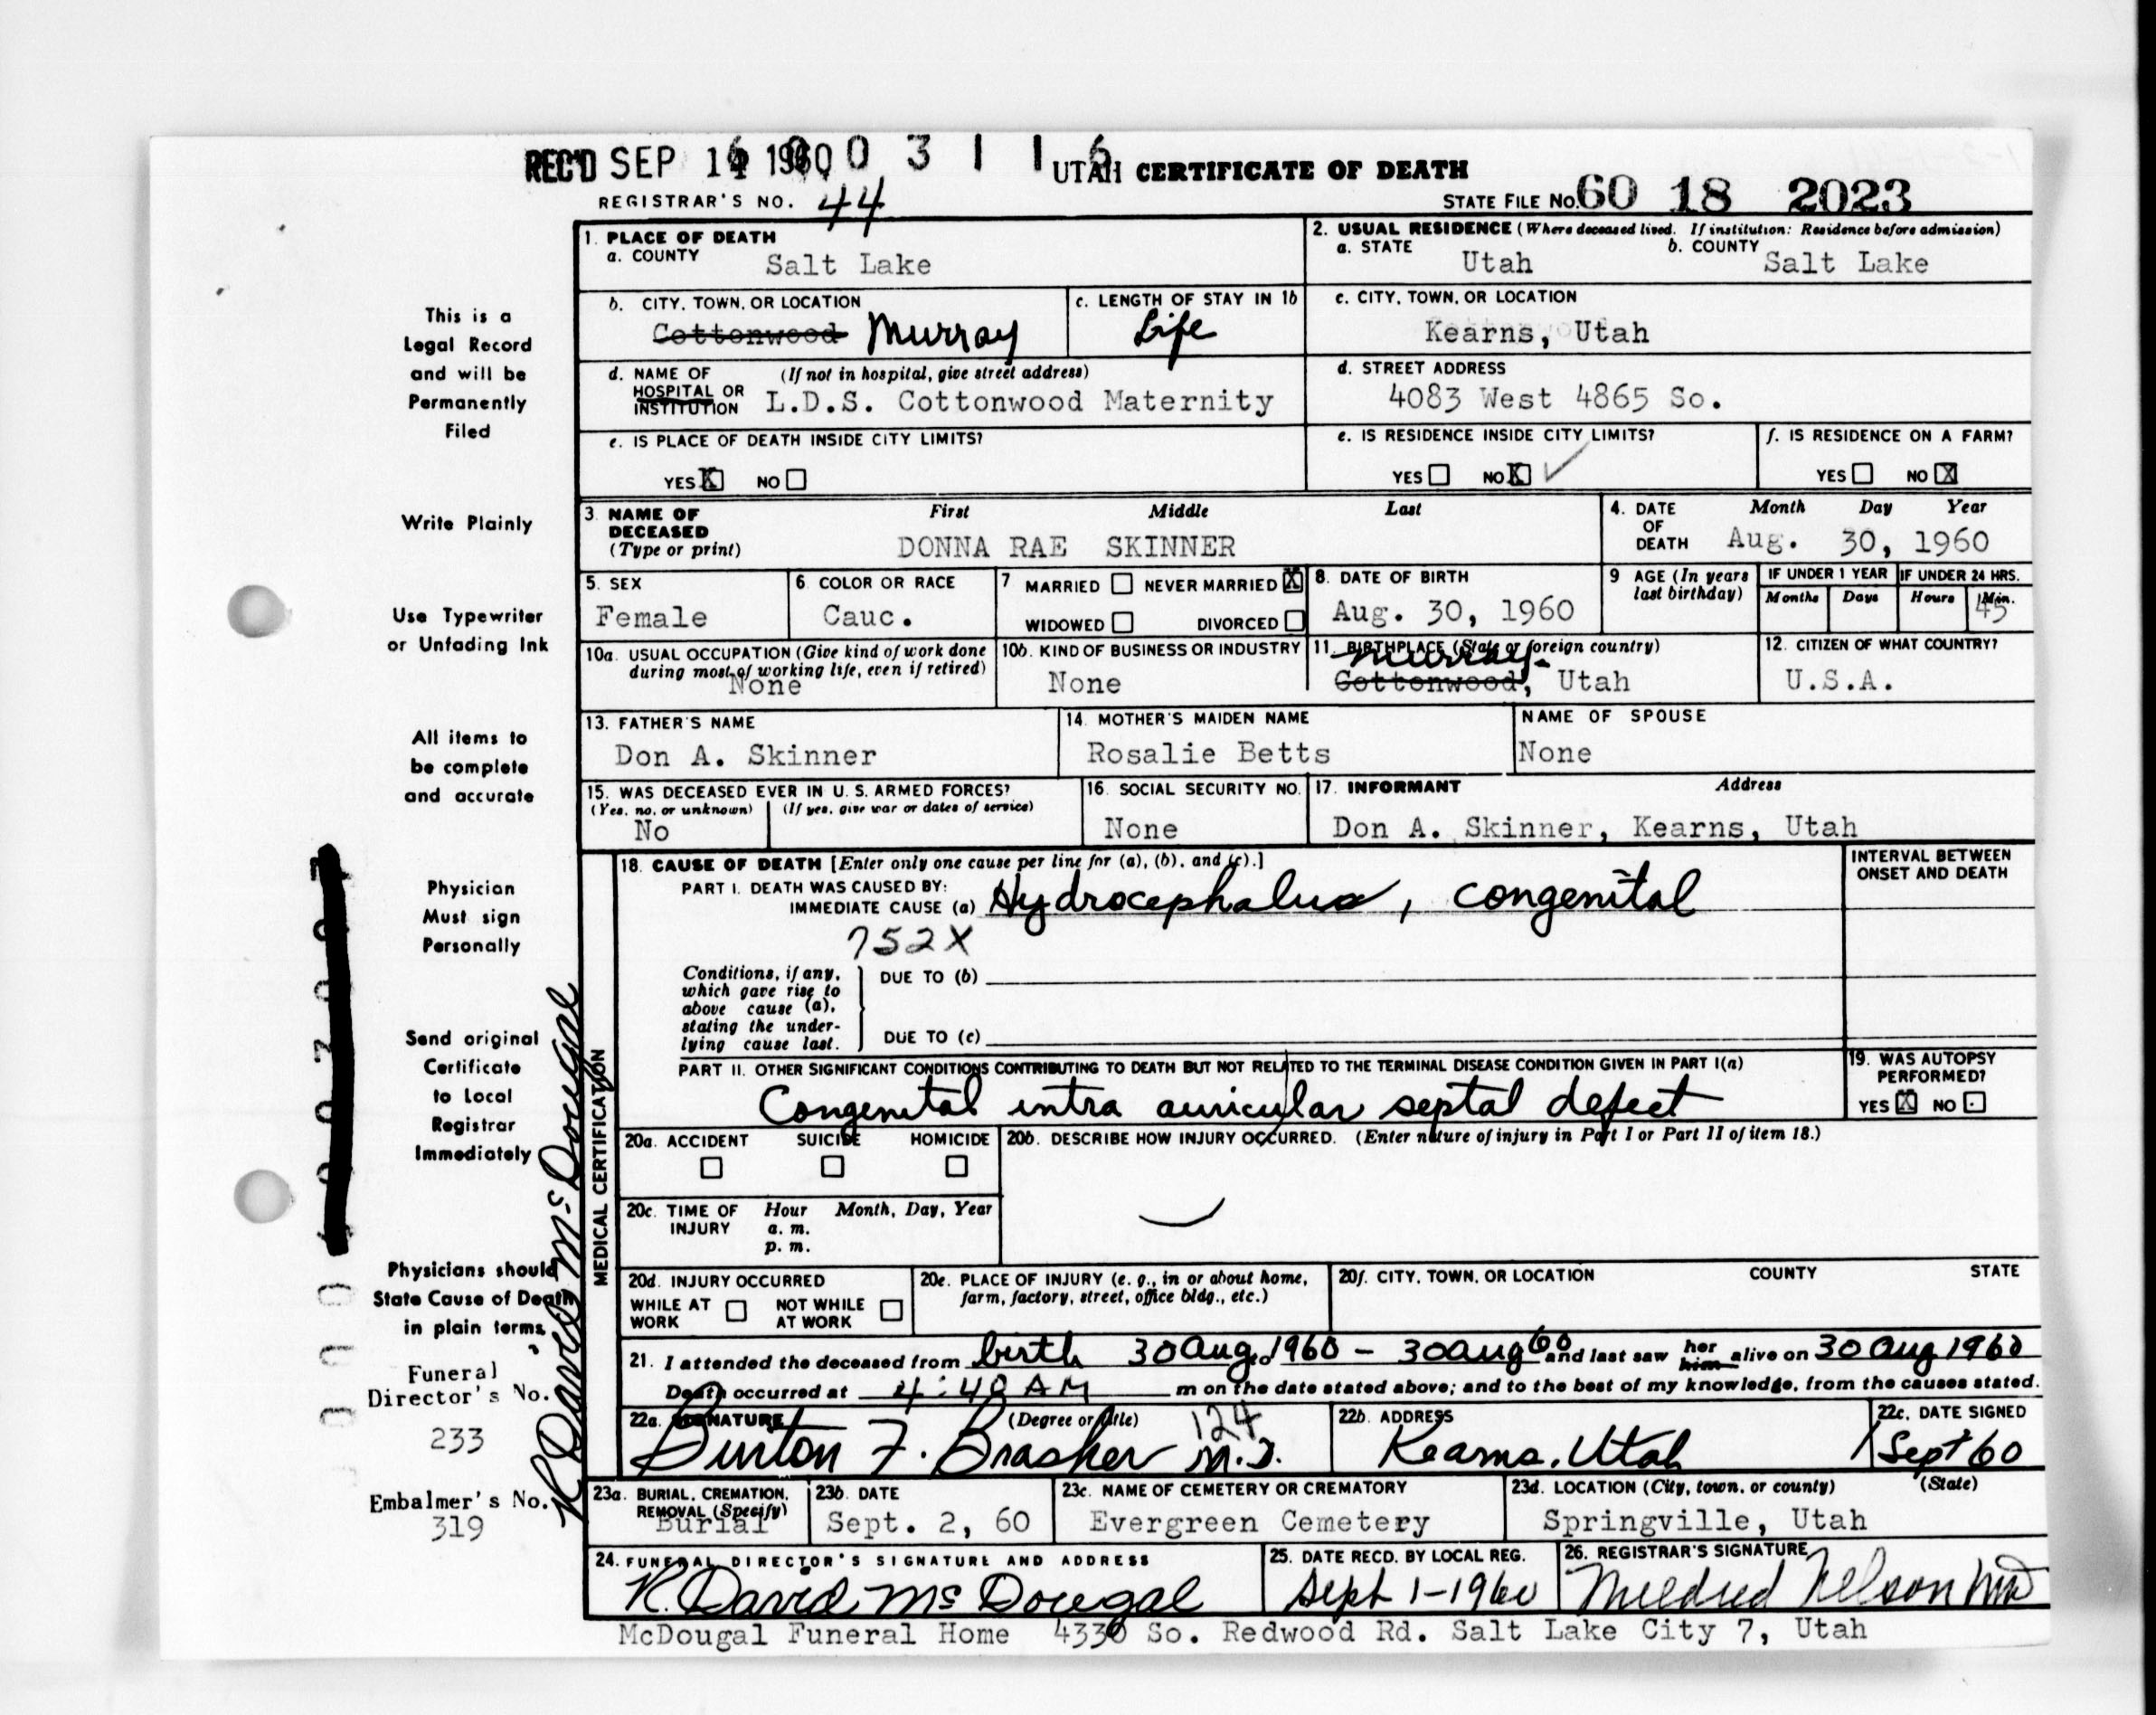 REC'D SEP 14 1960 0 3 1 1 6
UTAH CERTIFICATE OF DEATH
REGISTRAR'S NO. 44
STATE FILE NO. 60 18 2023
1. PLACE OF DEATH
a. COUNTY Salt Lake
2. USUAL RESIDENCE (Where deceased lived. If institution: Residence before admission)
a. STATE Utah b. COUNTY Salt Lake
b. CITY, TOWN, OR LOCATION Cottonwood Murray
c. LENGTH OF STAY IN 1b Life
c. CITY, TOWN, OR LOCATION Kearns, Utah
d. NAME OF HOSPITAL OR INSTITUTION (If not in hospital, give street address) L.D.S. Cottonwood Maternity
d. STREET ADDRESS 4083 West 4865 So.
e. IS PLACE OF DEATH INSIDE CITY LIMITS?
YES X NO
e. IS RESIDENCE INSIDE CITY LIMITS?
YES NO X
f. IS RESIDENCE ON A FARM?
YES NO X
3. NAME OF DECEASED (Type or print)
First Middle Last
DONNA RAE SKINNER
4. DATE OF DEATH Month Day Year
Aug. 30, 1960
5. SEX Female
6. COLOR OR RACE Cauc.
7 MARRIED NEVER MARRIED X
WIDOWED DIVORCED
8. DATE OF BIRTH Aug. 30, 1960
9 AGE (In years last birthday)
IF UNDER 1 YEAR Months Days
IF UNDER 24 HRS. Hours Min. 45
10a. USUAL OCCUPATION (Give kind of work done during most of working life, even if retired) None
10b. KIND OF BUSINESS OR INDUSTRY None
11. BIRTHPLACE (State or foreign country) Murray Cottonwood, Utah
12. CITIZEN OF WHAT COUNTRY? U.S.A.
13. FATHER'S NAME Don A. Skinner
14. MOTHER'S MAIDEN NAME Rosalie Betts
NAME OF SPOUSE None
15. WAS DECEASED EVER IN U. S. ARMED FORCES?
(Yes, no, or unknown) (If yes, give war or dates of service)
No
16. SOCIAL SECURITY NO. None
17. INFORMANT Address
Don A. Skinner, Kearns, Utah
18. CAUSE OF DEATH [Enter only one cause per line for (a), (b), and (c).]
INTERVAL BETWEEN ONSET AND DEATH
PART I. DEATH WAS CAUSED BY:
IMMEDIATE CAUSE (a) Hydrocephalus, congenital
752X
Conditions, if any, which gave rise to above cause (a), stating the underlying cause last.
DUE TO (b)
DUE TO (c)
PART II. OTHER SIGNIFICANT CONDITIONS CONTRIBUTING TO DEATH BUT NOT RELATED TO THE TERMINAL DISEASE CONDITION GIVEN IN PART I(a)
Congenital intra auricular septal defect
19. WAS AUTOPSY PERFORMED?
YES X NO
20a. ACCIDENT SUICIDE HOMICIDE
20b. DESCRIBE HOW INJURY OCCURRED. (Enter nature of injury in Part I or Part II of item 18.)
20c. TIME OF INJURY Hour Month, Day, Year
a. m.
p. m.
20d. INJURY OCCURRED
WHILE AT WORK NOT WHILE AT WORK
20e. PLACE OF INJURY (e. g., in or about home, farm, factory, street, office bldg., etc.)
20f. CITY, TOWN, OR LOCATION COUNTY STATE
21. I attended the deceased from birth 30 Aug 1960 - 30 Aug 60 and last saw her him alive on 30 Aug 1960
Death occurred at 4:40 AM m on the date stated above; and to the best of my knowledge, from the causes stated.
22a. SIGNATURE (Degree or title) 124
Burton F. Brasher M.D.
22b. ADDRESS Kearns, Utah
22c. DATE SIGNED 1 Sept 60
23a. BURIAL, CREMATION, REMOVAL (Specify) Burial
23b. DATE Sept. 2, 60
23c. NAME OF CEMETERY OR CREMATORY Evergreen Cemetery
23d. LOCATION (City, town, or county) (State)
Springville, Utah
24. FUNERAL DIRECTOR'S SIGNATURE AND ADDRESS
R. David McDougal
25. DATE RECD. BY LOCAL REG. Sept 1-1960
26. REGISTRAR'S SIGNATURE Mildred Nelson
McDougal Funeral Home 4330 So. Redwood Rd. Salt Lake City 7, Utah
MEDICAL CERTIFICATION
R David McDougal
This is a
Legal Record
and will be
Permanently
Filed
Write Plainly
Use Typewriter
or Unfading Ink
All items to
be complete
and accurate
Physician
Must sign
Personally
Send original
Certificate
to Local
Registrar
Immediately
Physicians should
State Cause of Death
in plain terms
Funeral
Director's No.
233
Embalmer's No.
319